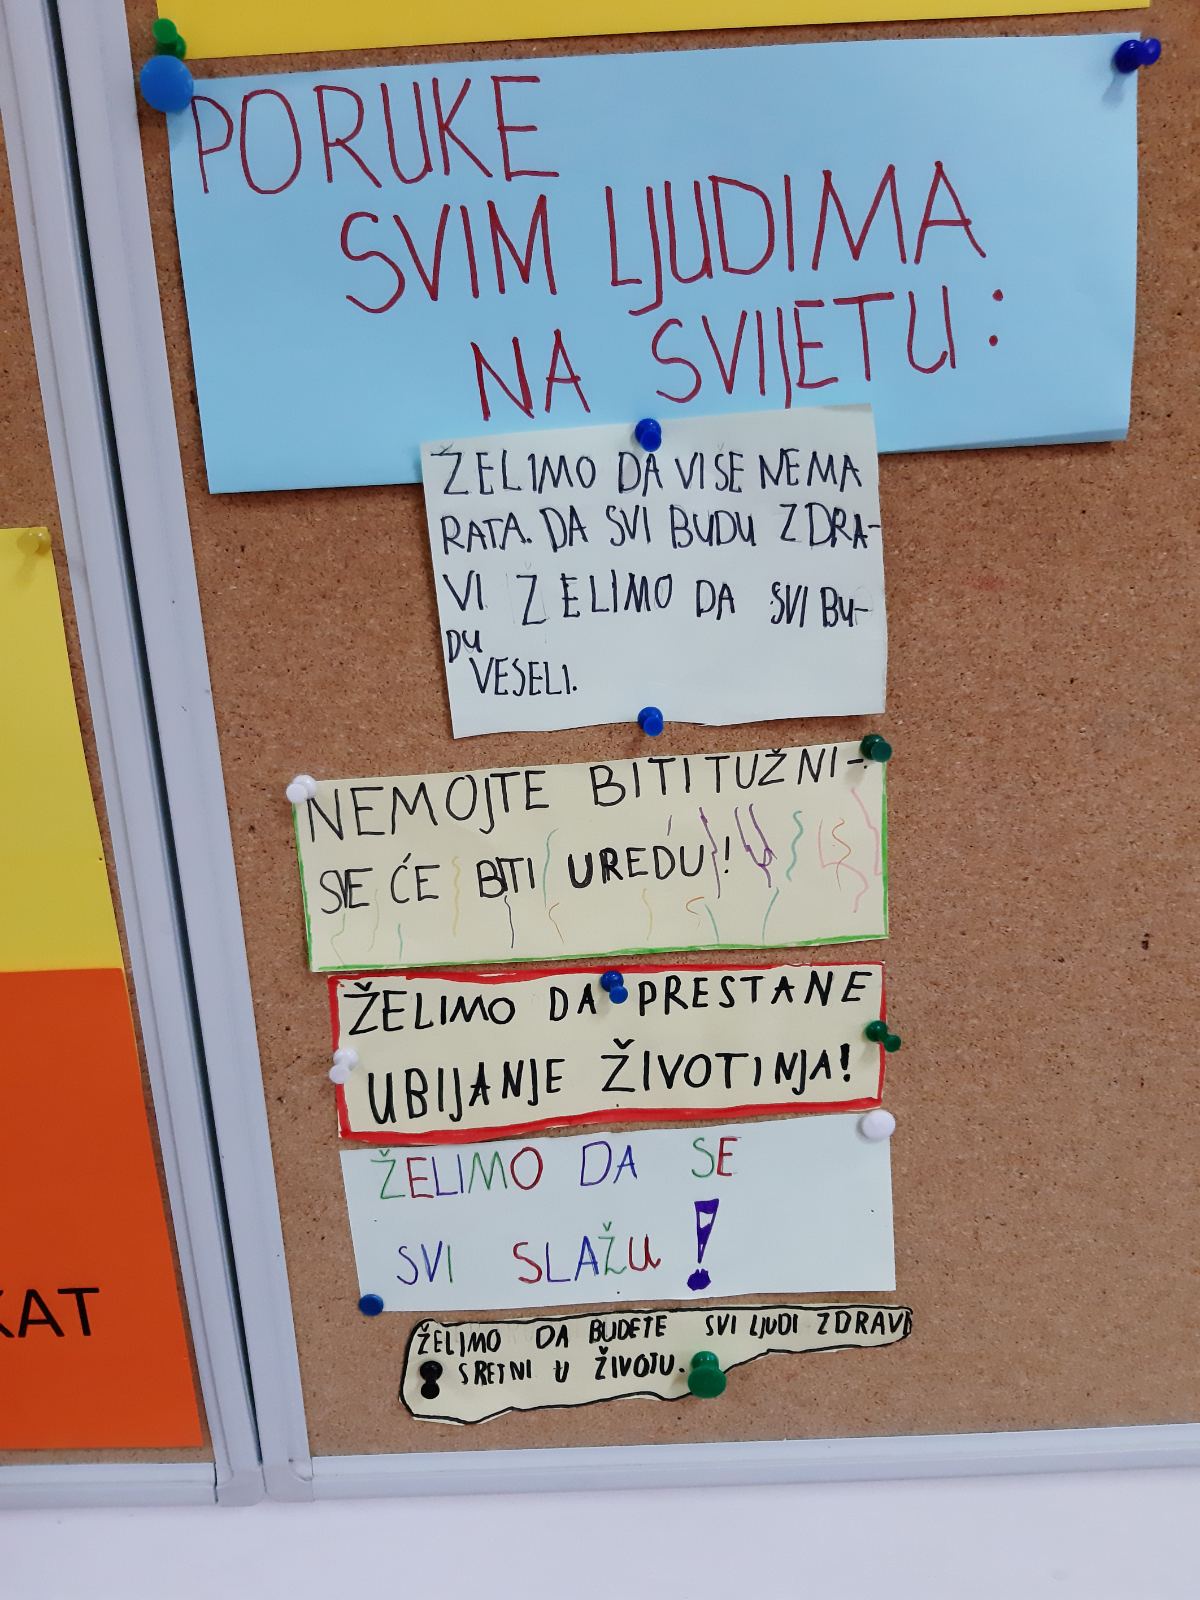 PORUKE
SVIM LJUDIMA
NA SVIJETU:
ŽELIMO DA VIŠE NEMA
RATA. DA SVI BUDU ZDRA-
VI ŽELIMO DA SVI BU-
DU
VESELI.
NEMOJTE BITI TUŽNI-
SVE ĆE BITI UREDU!
ŽELIMO DA PRESTANE
UBIJANJE ŽIVOTINJA!
ŽELIMO DA SE
SVI SLAŽU!
ŽELIMO DA BUDETE SVI LJUDI ZDRAVI
SRETNI U ŽIVOTU.
KAT